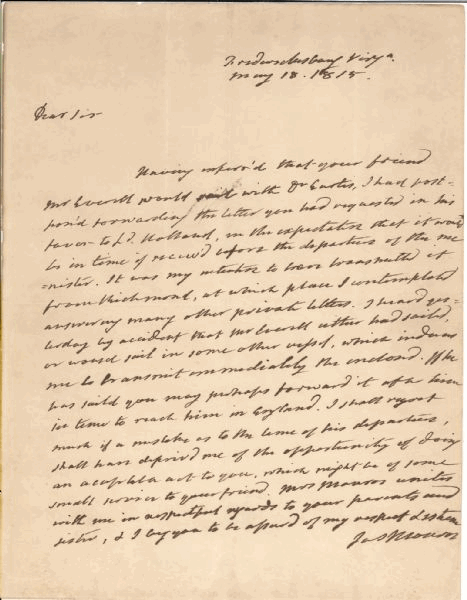 Fredericksburg Virga.
May 18. 1815.
Dear Sir
Having infer'd that your friend
Mr Everett would sail with Dr Eustis, I had post-
pon'd forwarding the letter you had requested in his
favor to Ld Holland, in the expectation that it would
be in time if receiv'd before the departure of the mi
-nister. It was my intention to have transmitted it
from Richmond, at which place I contemplated
answering many other private letters. I heard yes-
terday by accident that Mr Everett either had sailed,
or would sail in some other vessel, which induces
me to transmit immediately the enclosed. If he
has saild you may perhaps forward it after him
in time to reach him in England. I shall regret
much if a mistake as to the time of his departure,
shall have depriv'd me of the opportunity of doing
an acceptable act to you, which might be of some
small service to your friend. Mrs Monroe unites
with me in respectful regards to your parents and
sister, & I beg you to be assurd of my respect & esteem
Jas Monroe